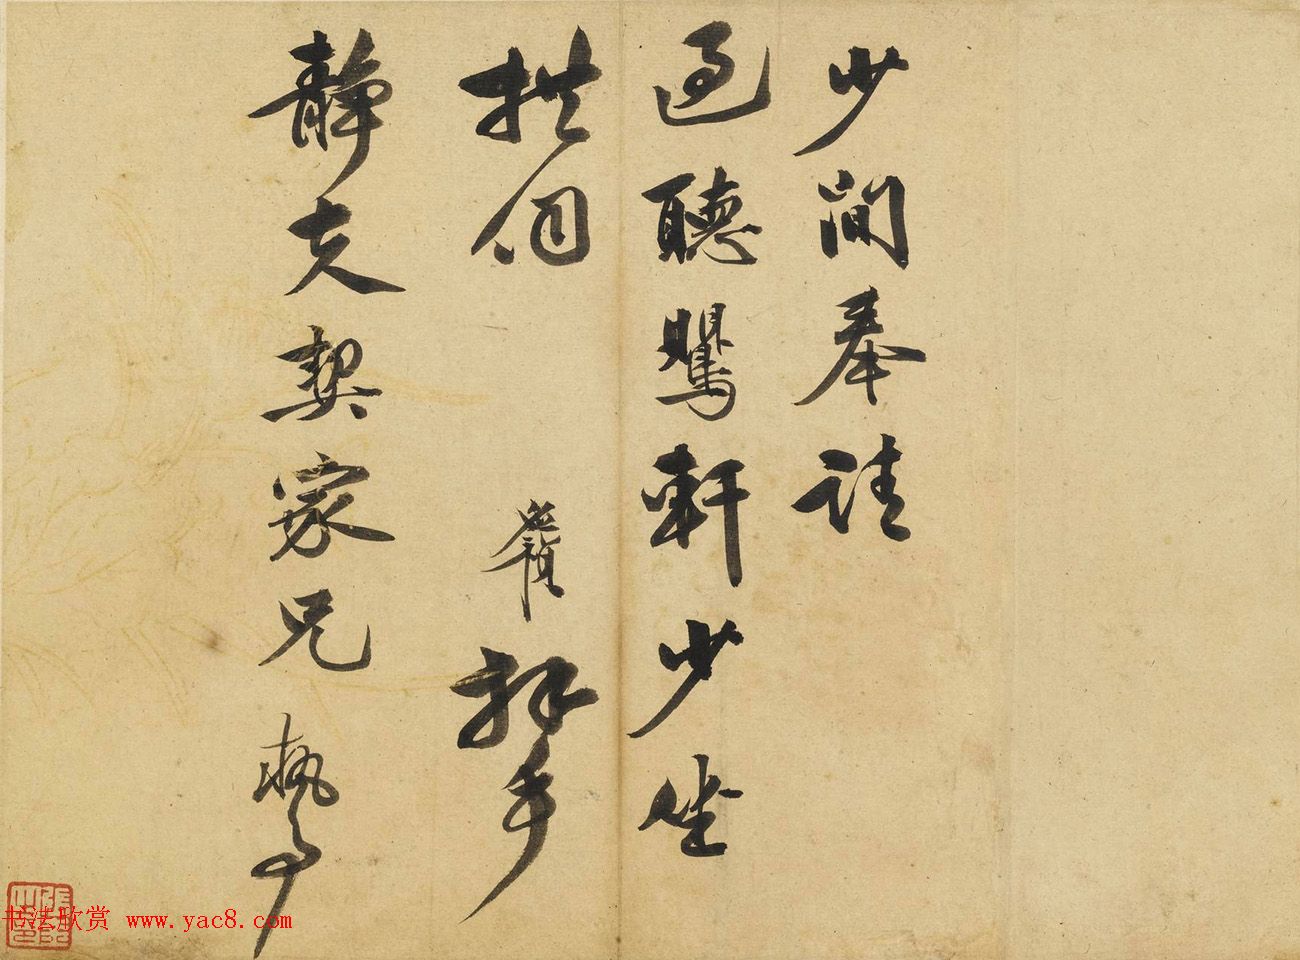 少間奉請
過聽鸎軒少坐
拱伺 觷拜手
靜夫契家兄 執事
书法欣赏 www.yac8.com